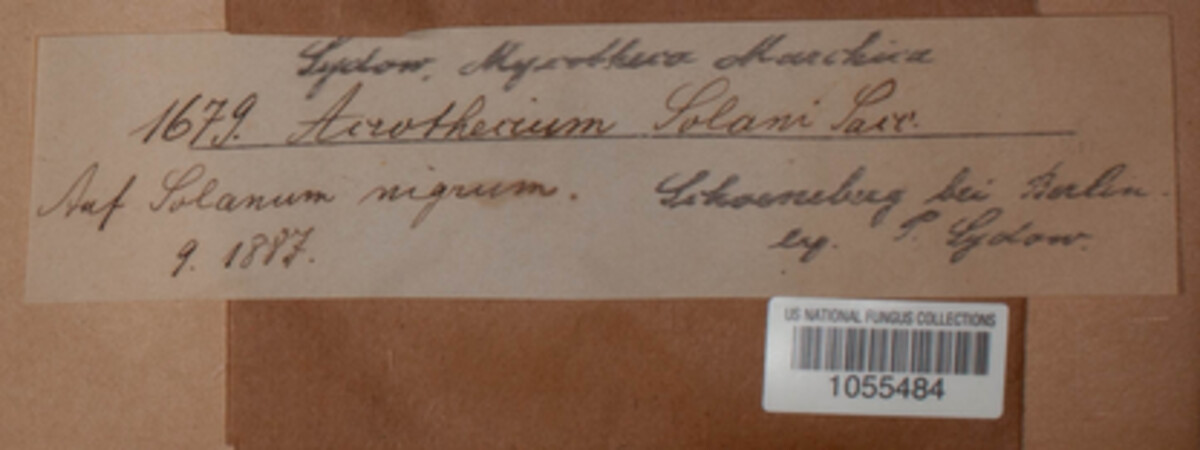 Sydow, Mycotheca Marchica
1679. Acrothecium Solani Sacc.
Auf Solanum nigrum.
9. 1887.
Schoeneberg bei Berlin.
leg. P. Sydow.
US NATIONAL FUNGUS COLLECTIONS
1055484